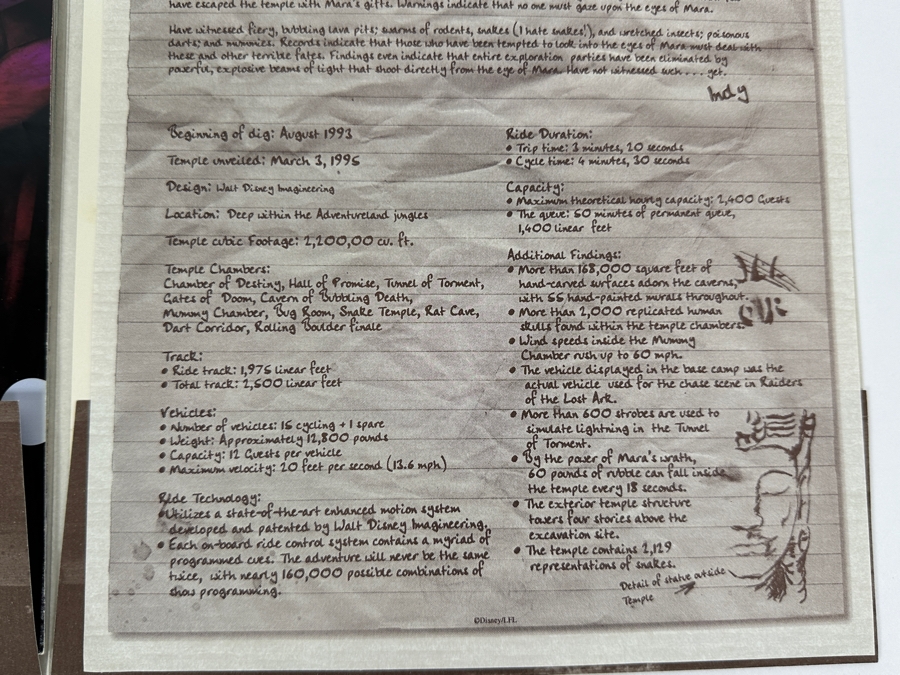 have escaped the temple with Mara's gifts. Warnings indicate that no one must gaze upon the eyes of Mara.
Have witnessed fiery, bubbling lava pits; swarms of rodents, snakes (I hate snakes!), and wretched insects; poisonous
darts; and mummies. Records indicate that those who have been tempted to look into the eyes of Mara must deal with
these and other terrible fates. Findings even indicate that entire exploration parties have been eliminated by
powerful, explosive beams of light that shoot directly from the eye of Mara. Have not witnessed such . . . yet.
Indy
Beginning of dig: August 1993
Temple unveiled: March 3, 1995
Design: Walt Disney Imagineering
Location: Deep within the Adventureland jungles
Temple cubic Footage: 2,200,00 cu. ft.
Temple Chambers:
Chamber of Destiny, Hall of Promise, Tunnel of Torment,
Gates of Doom, Cavern of Bubbling Death,
Mummy Chamber, Bug Room, Snake Temple, Rat Cave,
Dart Corridor, Rolling Boulder finale
Track:
• Ride track: 1,975 linear feet
• Total track: 2,500 linear feet
Vehicles:
• Number of vehicles: 15 cycling + 1 spare
• Weight: Approximately 12,800 pounds
• Capacity: 12 Guests per vehicle
• Maximum velocity: 20 feet per second (13.6 mph)
Ride Technology:
• Utilizes a state-of-the-art enhanced motion system
developed and patented by Walt Disney Imagineering.
• Each on-board ride control system contains a myriad of
programmed cues. The adventure will never be the same
twice, with nearly 160,000 possible combinations of
show programming.
Ride Duration:
• Trip time: 3 minutes, 20 seconds
• Cycle time: 4 minutes, 30 seconds
Capacity:
• Maximum theoretical hourly capacity: 2,400 Guests
• The queue: 50 minutes of permanent queue,
1,400 linear feet
Additional Findings:
• More than 168,000 square feet of
hand-carved surfaces adorn the caverns,
with 55 hand-painted murals throughout.
• More than 2,000 replicated human
skulls found within the temple chambers.
• Wind speeds inside the Mummy
Chamber rush up to 60 mph.
• The vehicle displayed in the base camp was the
actual vehicle used for the chase scene in Raiders
of the Lost Ark.
• More than 600 strobes are used to
simulate lightning in the Tunnel
of Torment.
• By the power of Mara's wrath,
60 pounds of rubble can fall inside
the temple every 18 seconds.
• The exterior temple structure
towers four stories above the
excavation site.
• The temple contains 2,129
representations of snakes.
Detail of statue outside
Temple
©Disney/LFL